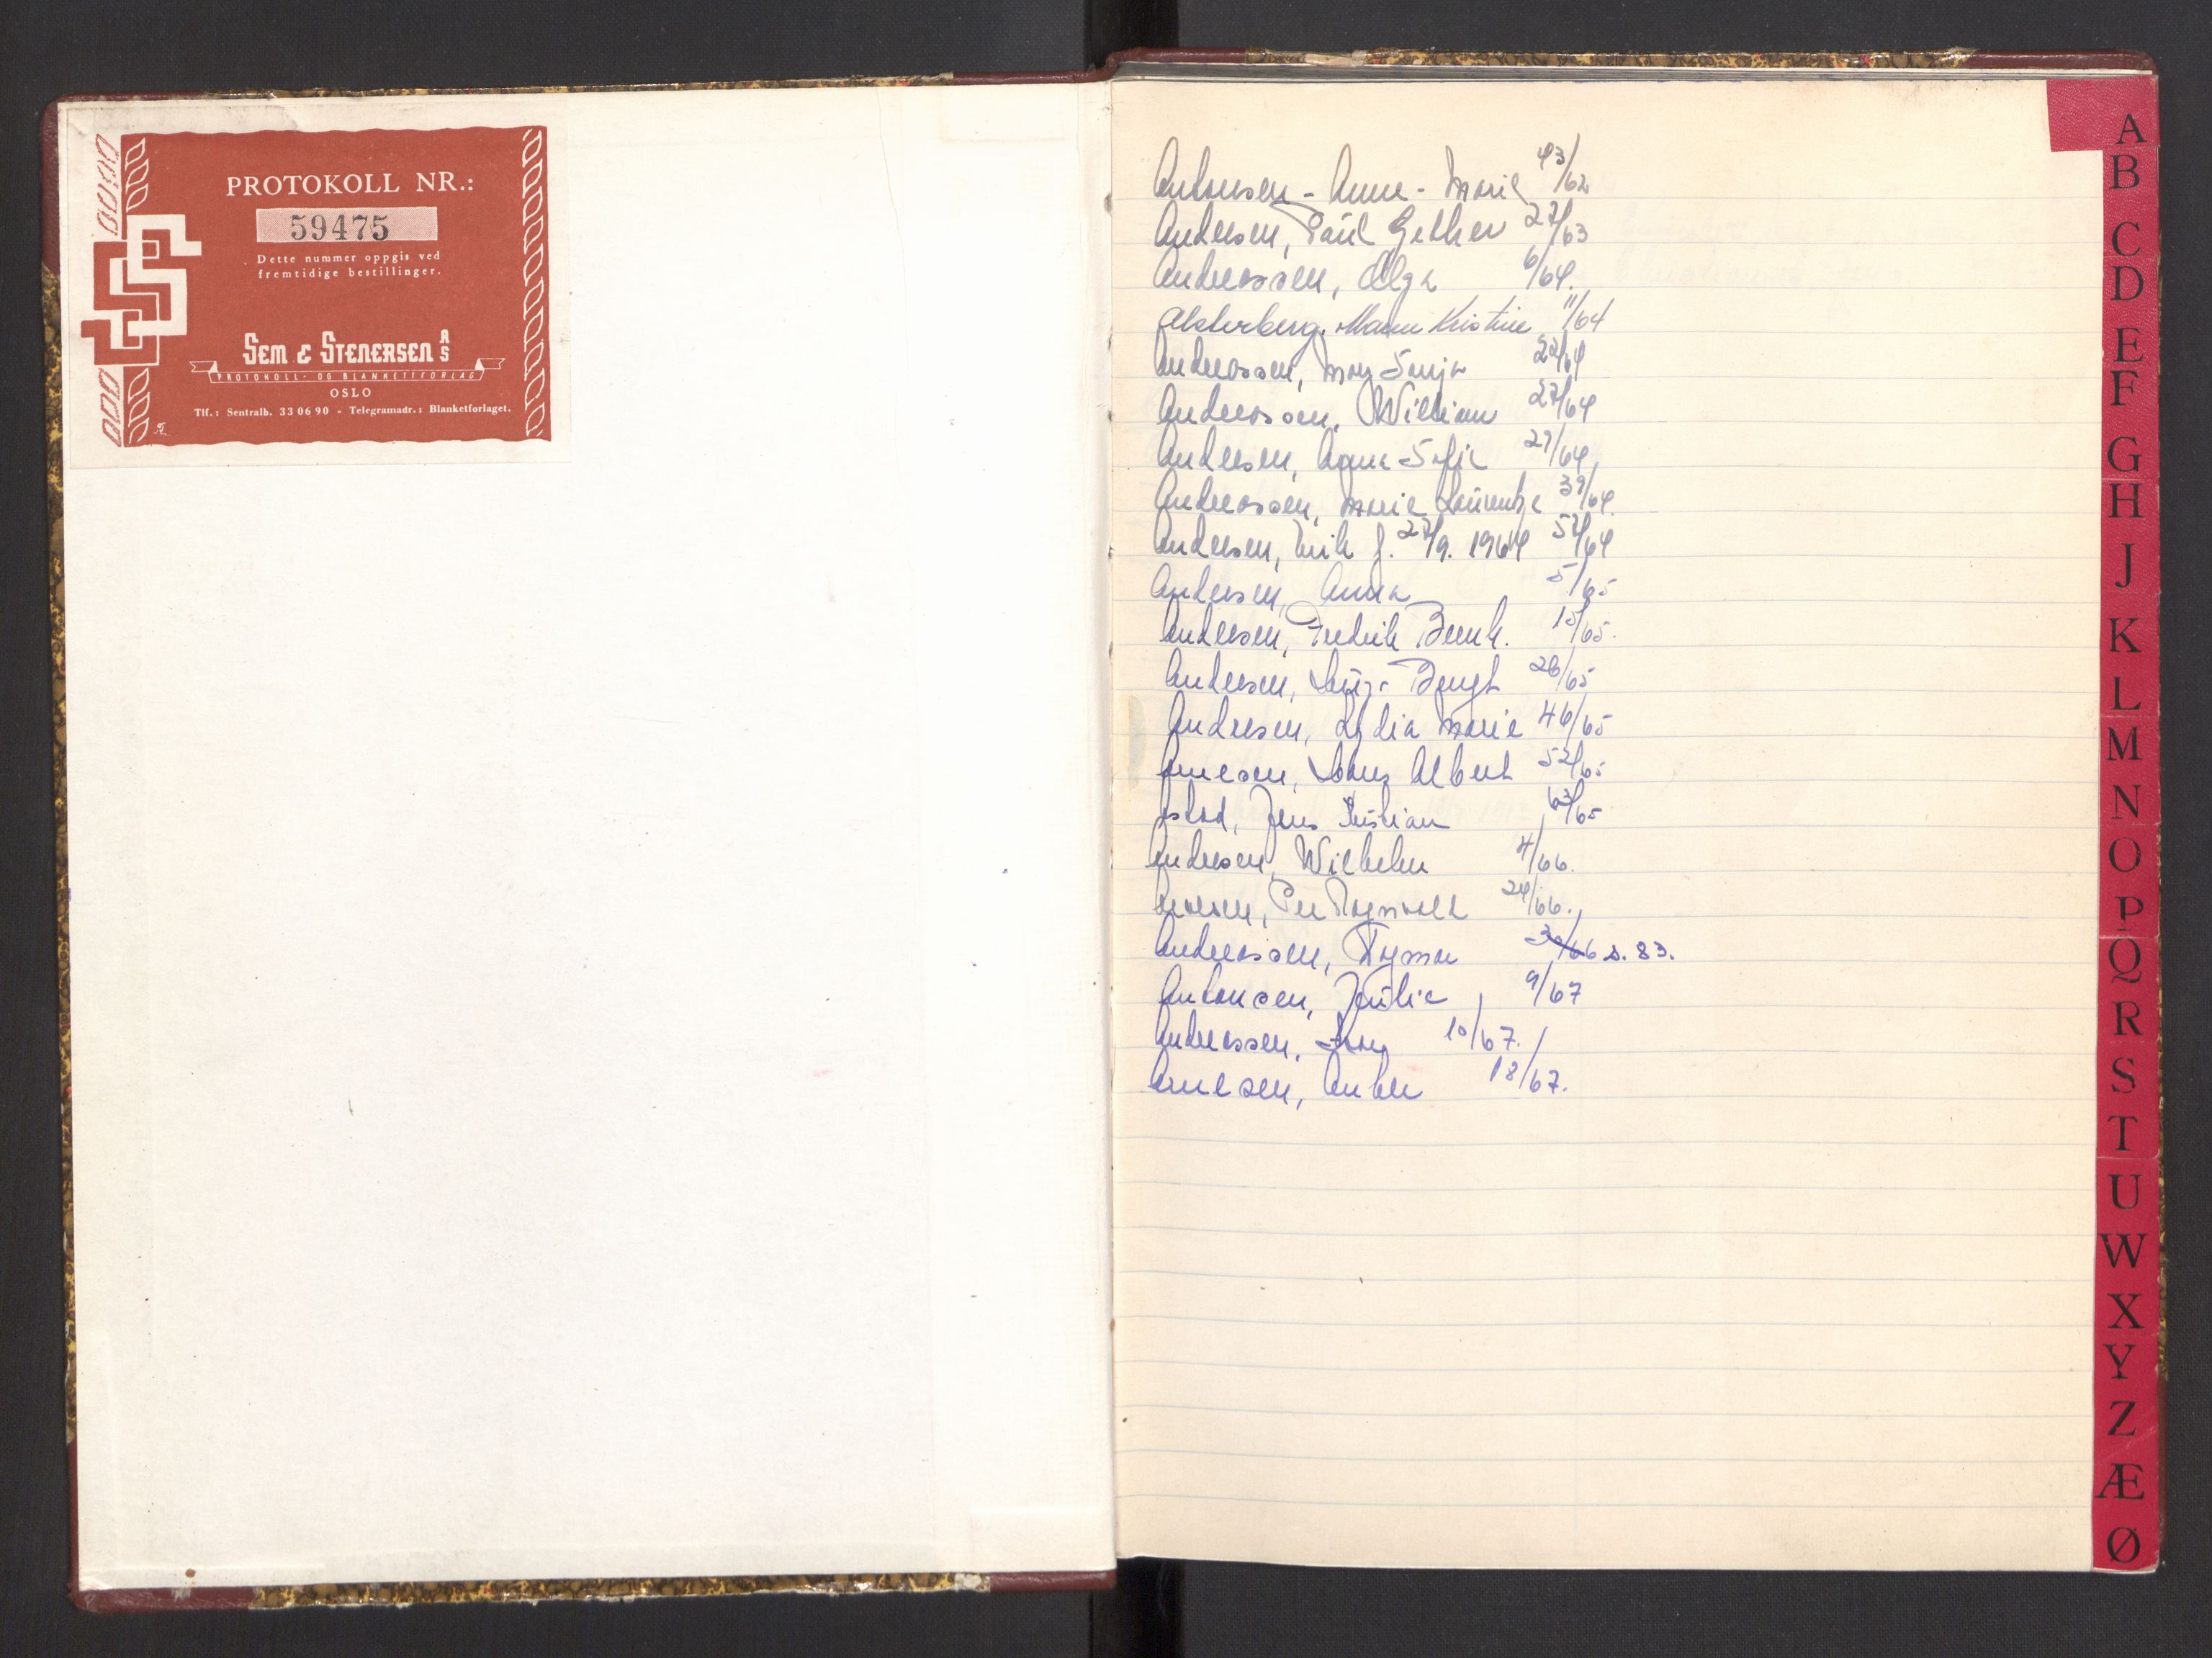 PROTOKOLL NR.:
59475
Dette nummer oppgis ved
fremtidige bestillinger.
SEM & STENERSEN A/S
PROTOKOLL- OG BLANKETTFORLAG
OSLO
Tlf.: Sentralb. 33 06 90 - Telegramadr.: Blanketforlaget.
Antonsen - Anne - Marie 43/62
Andresen, Paul Gether 27/63
Andreassen, Olga 6/64.
Alsterberg, Maren Kristine 11/64
Andreassen, May Sonja 22/64
Andreassen, William 27/64
Andersen, Anna Sofie 29/64
Andreassen, Marie Laurentze 39/64.
Andersen, Erik f. 27/9. 1964 52/64
Andersen, Anna 5/65
Andresen, Fredrik Bernh. 15/65.
Andersen, Bengt 26/65
Andresen, Lydia Marie 46/65
Arnesen, Hans Albert 52/65
Jens Kristian 63/65
Andresen, Wilhelm 4/66.
Per Ragnvald 24/66.
Andreassen, Ragnar 3/66 s. 83.
Antonsen, Julie 9/67
Andreassen, 10/67.
Arnesen, Anton 18/67.
A
B
C
D
E
F
G
H
J
K
L
M
N
O
P
Q
R
S
T
U
W
X
Y
Z
Æ
Ø